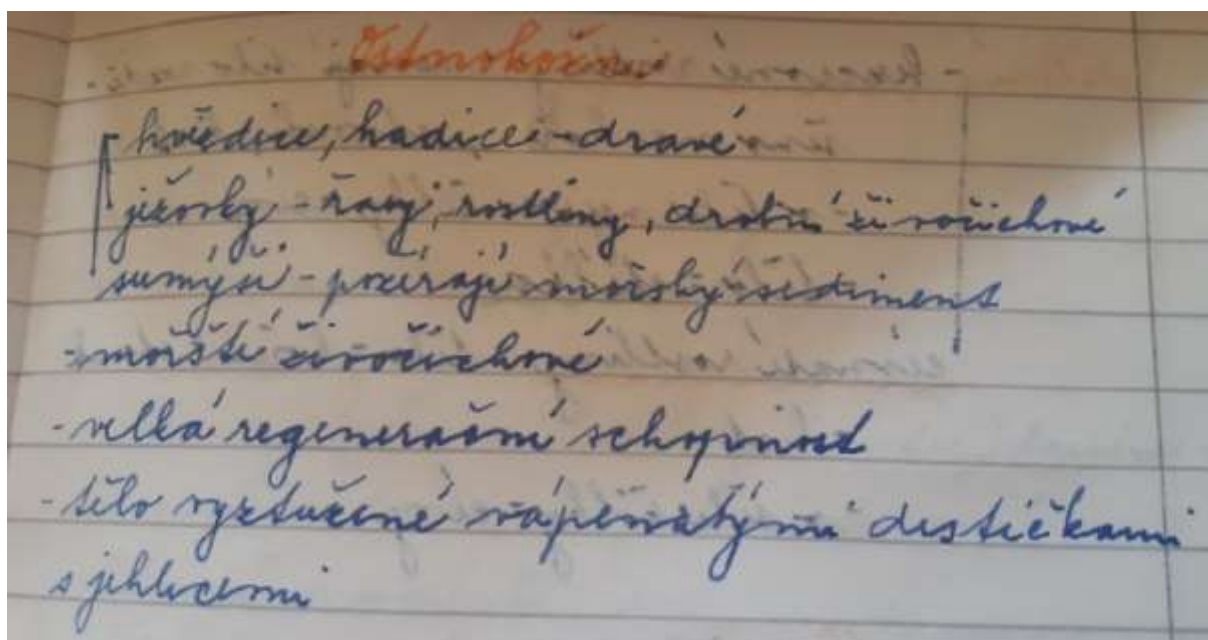 Ostnokožci
hvězdice, hadice - dravé
ježovky - řasy, rostliny, drobní živočichové
sumýši - požírají mořský sediment
- mořští živočichové
- velká regenerační schopnost
- tělo vyztužené vápenatými destičkami
s jehlicemi